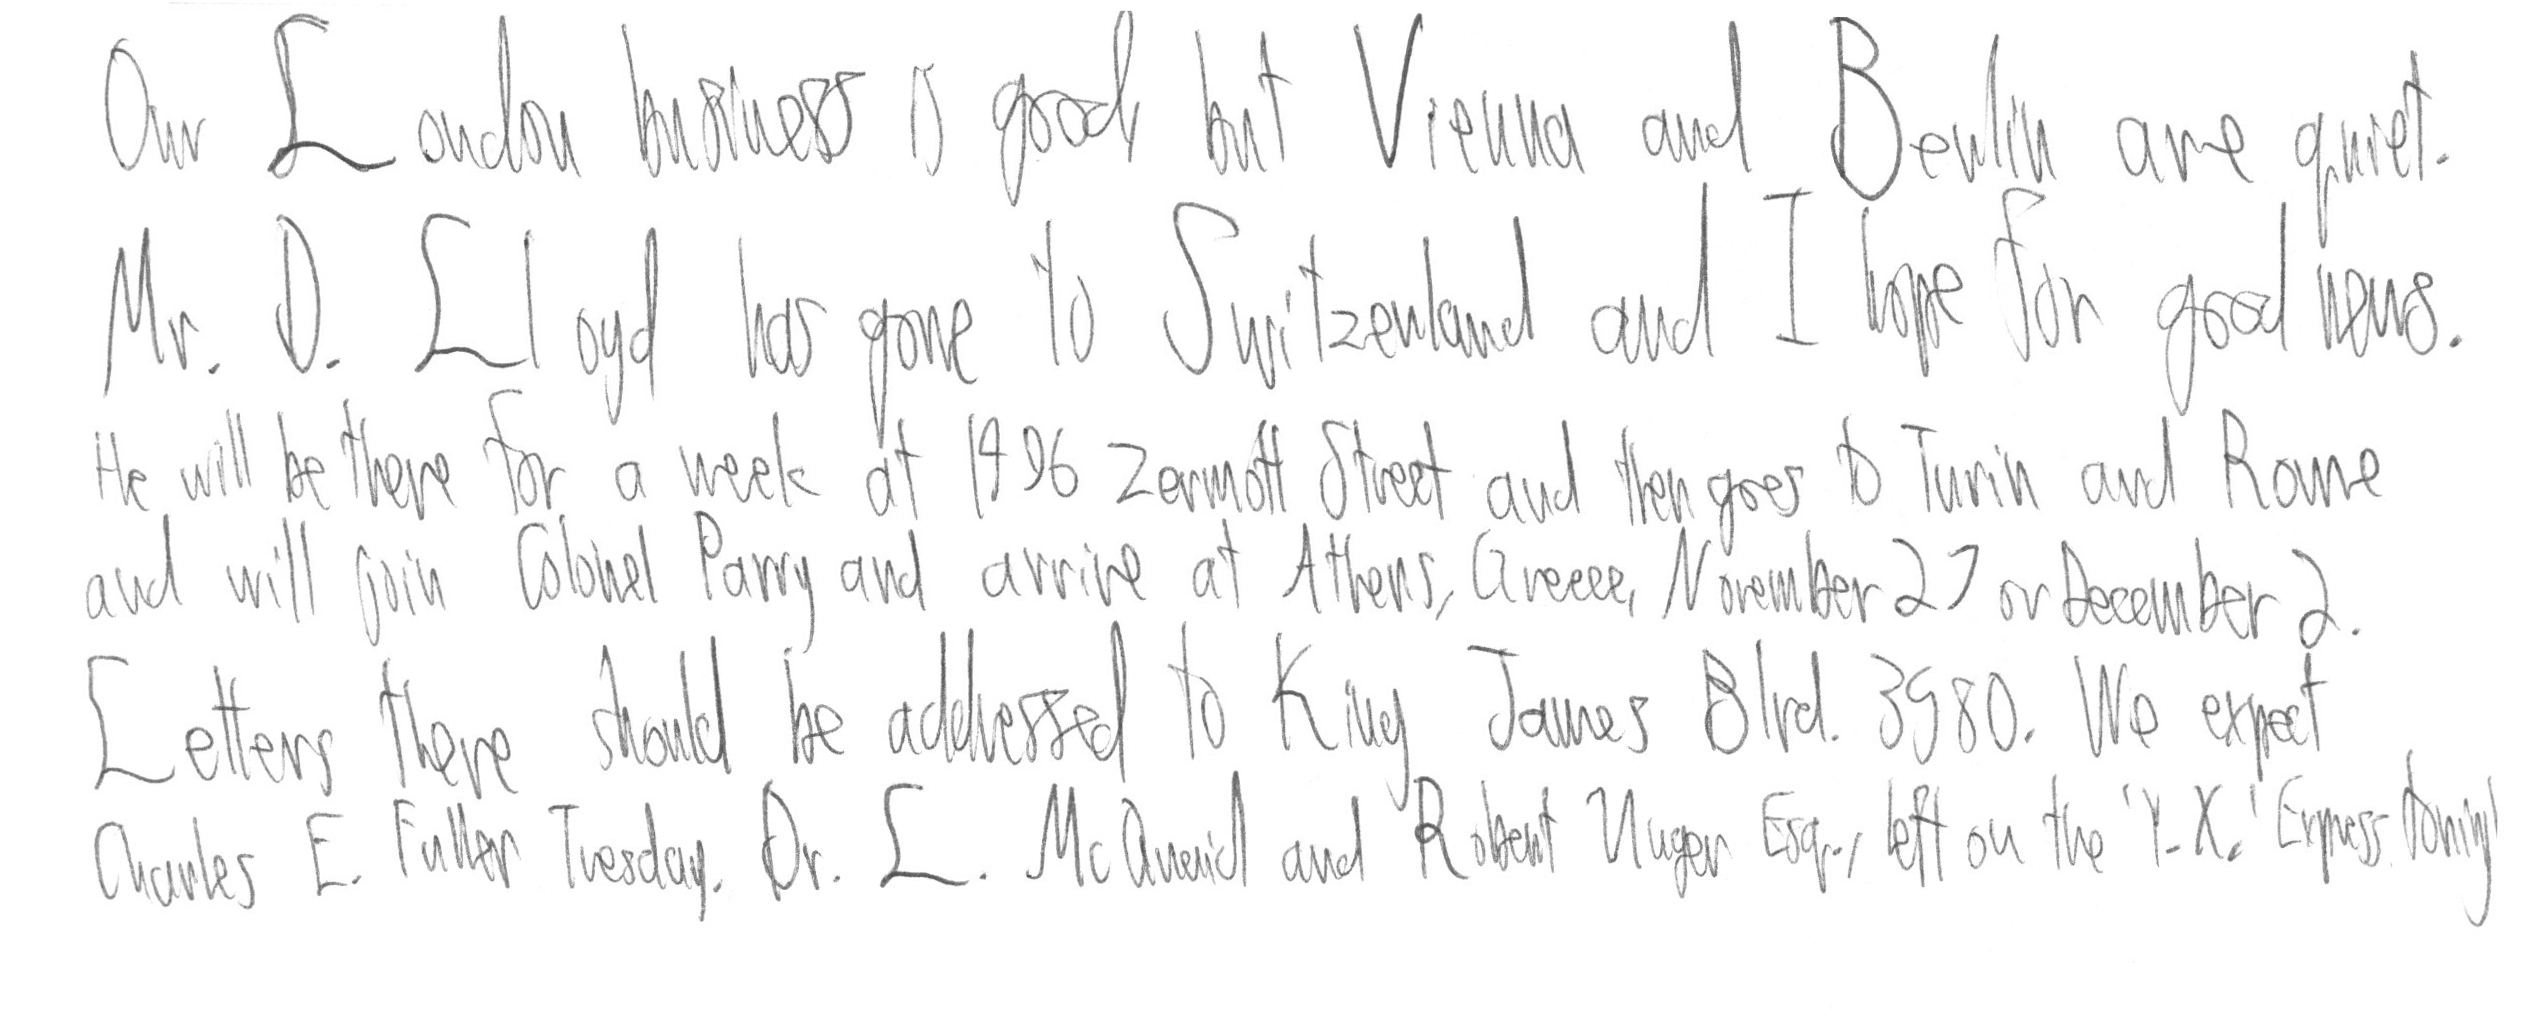 Our London business is good but Vienna and Berlin are quiet.
Mr. D. Lloyd has gone to Switzerland and I hope for good news.
He will be there for a week at 1496 Zermott Street and then goes to Turin and Rome
and will join Colonel Parry and arrive at Athens, Greece, November 27 or December 2.
Letters there should be addressed to King James Blvd. 3980. We expect
Charles E. Fuller Tuesday. Dr. L. McQuaid and Robert Unger Esq., left on the 'Y.X.' Express